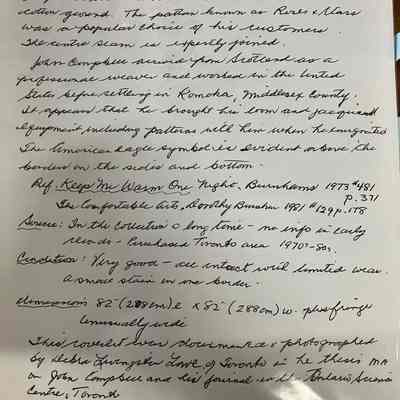 cotton ground. The pattern known as Roses & Stars
was a popular choice of his customers.
The centre seam is expertly joined.
John Campbell arrived from Scotland as a
professional weaver and worked in the United
States before settling in Komoka, Middlesex County.
It appears that he brought his loom and jacquard
equipment including patterns with him when he emigrated
The American eagle symbol is evident above the
border on the sides and bottom.
Ref. Keep Me Warm One Night, Burnhams 1973 #481
p. 371
The Comfortable Arts, Dorothy Burnham 1981 #129 p. 178
Source: In the collection a long time - no info in early
records - Purchased Toronto area 1970s-80s.
Condition: Very good - all intact with limited wear.
A small stain in one border.
Dimensions 82" (208cm) l x 82" (288cm) w - plus fringe
Unusually wide
This coverlet was documented & photographed
by Debra Livingston Love, of Toronto in her thesis MA
on John Campbell and his journal in the Ontario Science
Centre, Toronto